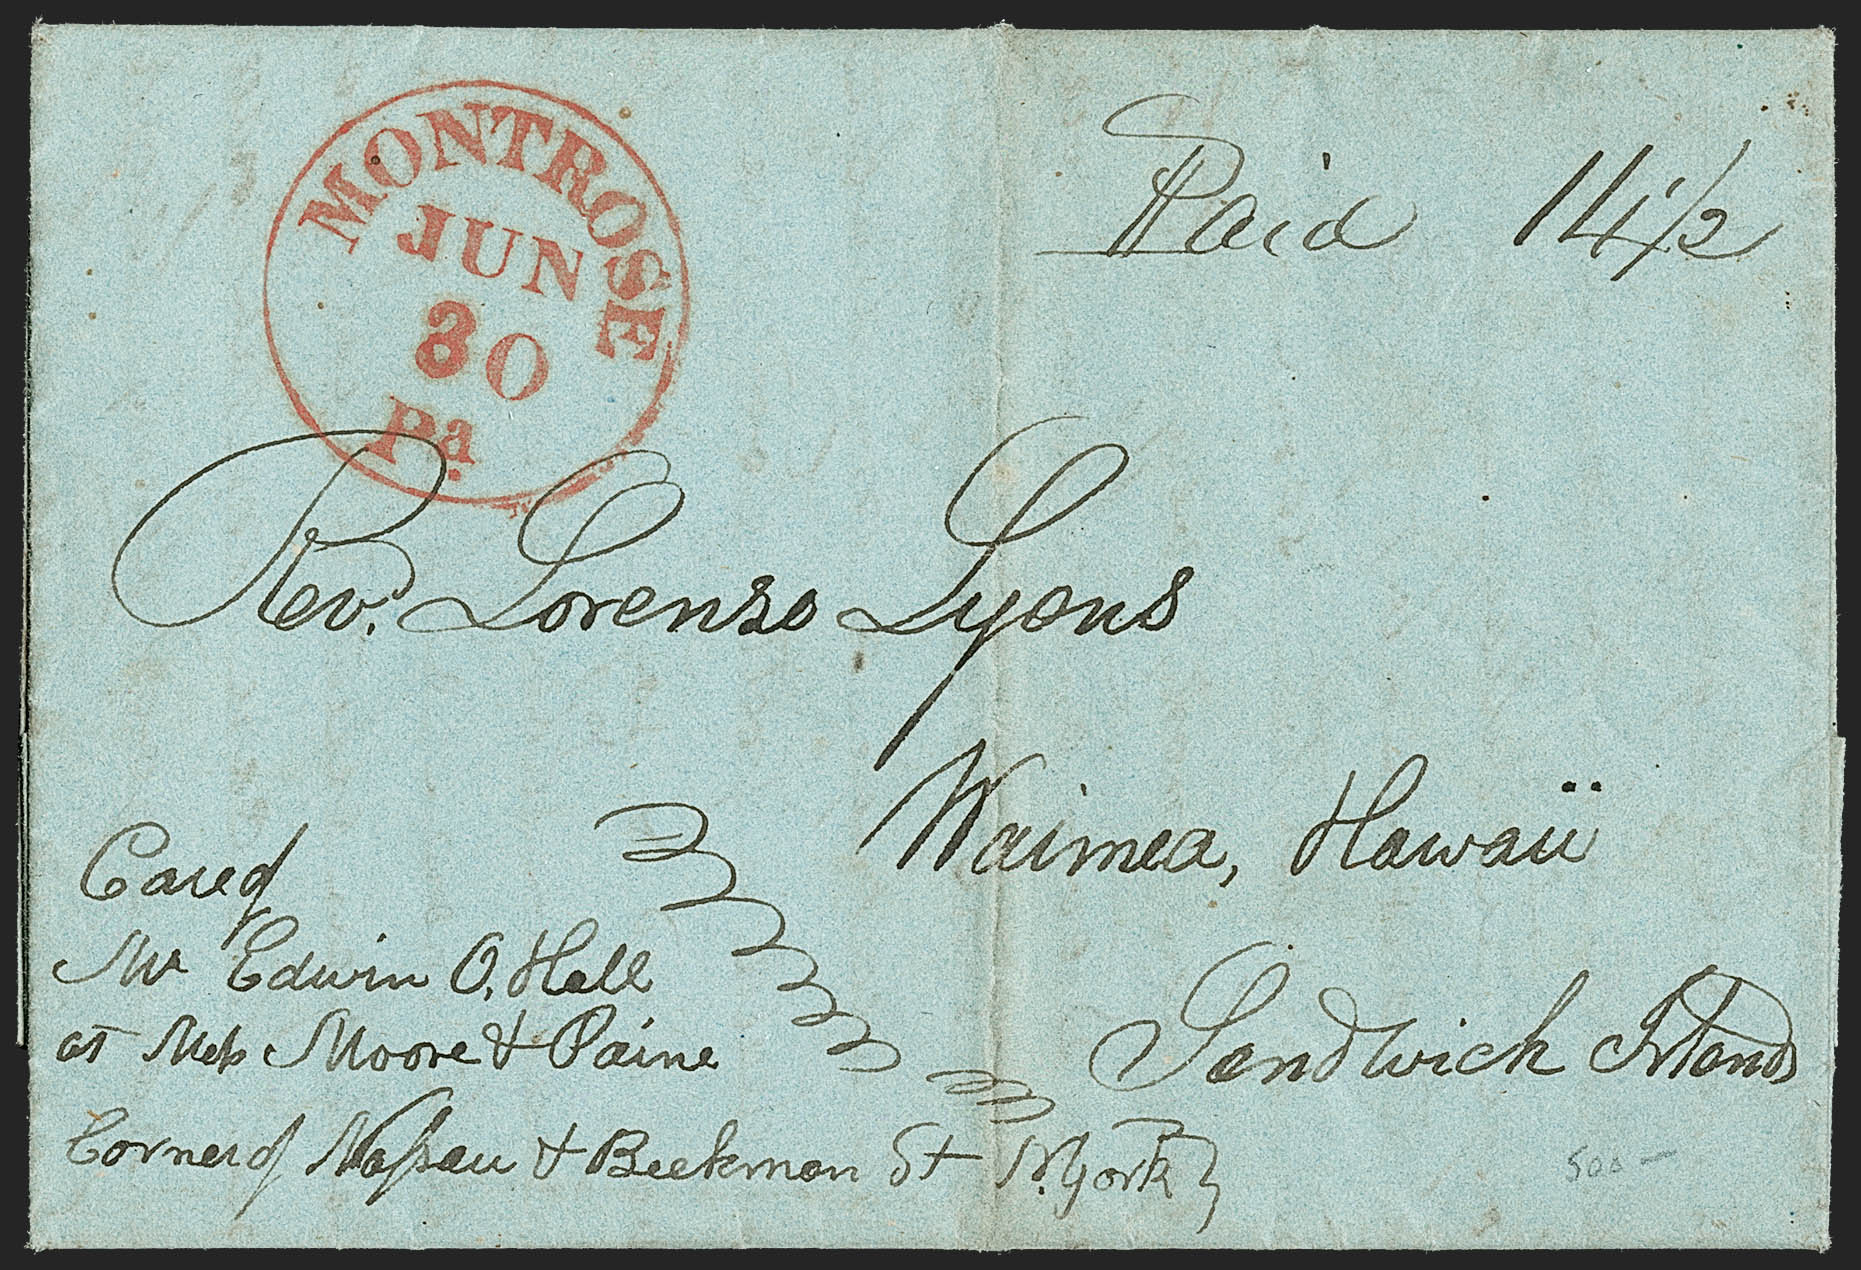 MONTROSE
JUN
30
Pa
Paid 14 1/2
Rev. Lorenzo Lyons
Waimea, Hawaii
Sandwich Islands
Care of
Mr Edwin O. Hall
at Mess Moore & Paine
Corner of Nassau & Beekman St N. York
500 —